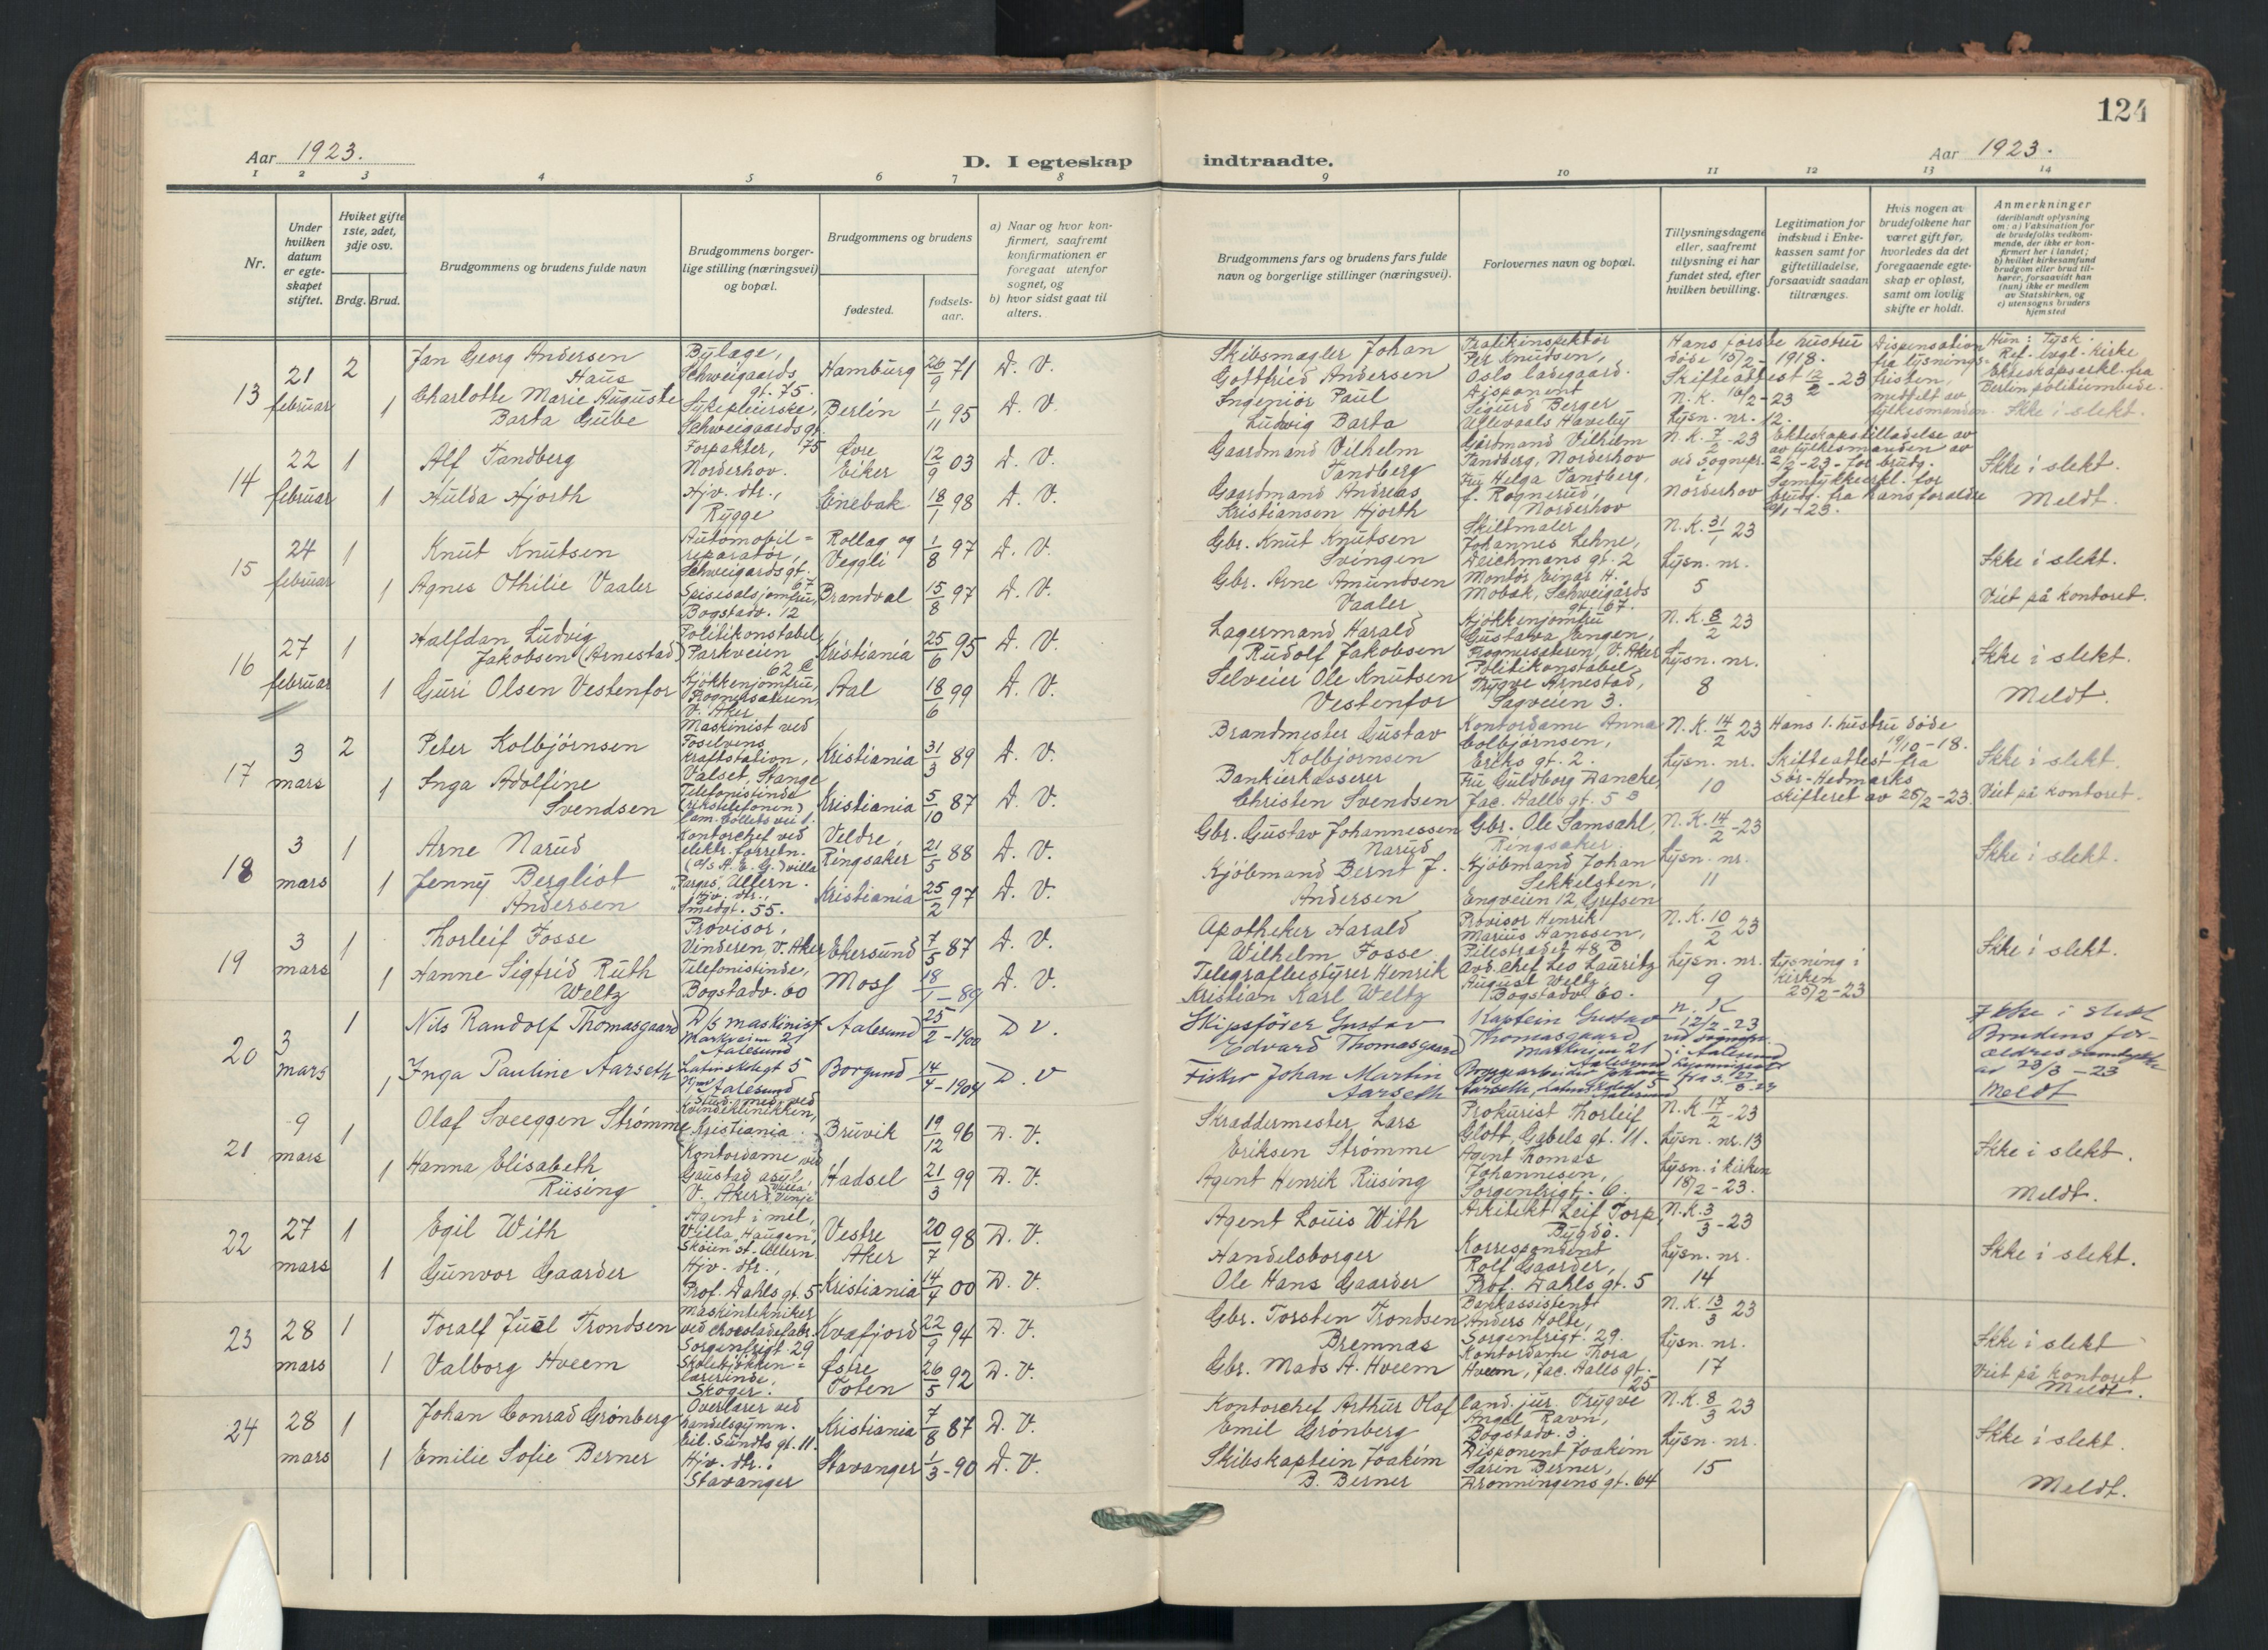 124
Aar 1923.
D. I egteskap indtraadte.
Aar 1923.
1 2 3 4 5 6 7 8 9 10 11 12 13 14
Nr.
Under hvilken datum er egteskapet stiftet.
Hviket gifte 1ste, 2det, 3dje osv.
Brdg. Brud.
Brudgommens og brudens fulde navn
Brudgommens borgerlige stilling (næringsvei) og bopæl.
Brudgommens og brudens
fødested.
fødselsaar.
a) Naar og hvor konfirmert, saafremt konfirmationen er foregaat utenfor sognet, og
b) hvor sidst gaat til alters.
Brudgommens fars og brudens fars fulde navn og borgerlige stillinger (næringsvei).
Forlovernes navn og bopæl.
Tillysningsdagene eller, saafremt tillysning ei har fundet sted, efter hvilken bevilling.
Legitimation for indskud i Enkekassen samt for giftetilladelse, forsaavidt saadan tiltrænges.
Hvis nogen av brudefolkene har været gift før, hvorledes da det foregaaende egteskap er opløst, samt om lovlig skifte er holdt.
Anmerkninger (deriblandt oplysning om: a) Vaksination for de brudefolks vedkommende, der ikke er konfirmert her i landet; b) hvilket kirkesamfund brudgom eller brud tilhører, forsaavidt han (hun) ikke er medlem av Statskirken, og c) utensogns bruders hjemsted
13
21 februar
2
Jan Georg Andersen Haus
Bylæge, Schweigaards gt. 75.
Hamburg
26/9 71
D. V.
1
Charlotte Marie Auguste Barta Gube
Sykepleierske, Schweigaards gt. 75
Berlin
1/11 95
D. V.
Skibsmægler Johan Gottfried Andersen
Ingeniør Paul Ludvig Barta
Trafikinspektør Per Knudsen, Oslo ladegaard.
Disponent Sigurd Berger
Ullevaals Haveby
Hans første hustru døde 15/2-1918.
Skifteattest 12/2-23
N. K. 10/2-23
Lysn. nr. 12.
Dispensation fra lysningsfristen, meddelt av fylkesmanden.
Hun: Tysk.
Ref. evgl. kirke
Ekteskapserkl. fra Berlin politiembede.
Ikke i slekt.
14
22 februar
1
Alf Tandberg
Forpakter, Norderhov.
Øvre Eiker
12/9 03
D. V.
1
Hulda Hjorth
Hjv. dtr., Rygge
Enebak
18/1 98
D. V.
Gaardmand Vilhelm Tandberg
Gaardmand Andreas Kristiansen Hjorth
Gårdmand Vilhelm Tandberg, Norderhov
Fru Helga Tandberg, f. Rognerud, Norderhov
N. K. 7/2-23
ved sognepr. i Norderhov
Ekteskapstilladelse av av fylkesmanden av 2/2-23 for brudg.
Samtykkeerkl. for brudg. fra hans foraldre
Ikke i slekt.
Meldt.
15
24 februar
1
Knut Knutsen
Automobilreparatør, Schweigardsgt. 67
Rollag og Veggli
1/8 97
D. V.
1
Agnes Othilie Vaaler
Spisesalsjomfru, Bogstadv. 12
Brandval
15/8 97
D. V.
Gbr. Knut Knutsen Svingen
Gbr. Arne Amundsen Vaaler
Skiltmaler Johannes Lehne, Deichmans gt. 2
Montør Einar H. Mobak, Schweigårds gt. 67.
N. K. 31/1 23
Lysn. nr. 5
Ikke i slekt.
Viet på kontoret.
16
27 februar
1
Halfdan Ludvig Jakobsen (Arnestad)
Politikonstabel, Parkveien 62 C
Kristiania
25/6 95
D. V.
1
Guri Olsen Vestenfor
Kjøkkenjomfru, Frognersæteren, V. Aker
Aal
18/6 99
D. V.
Lagermand Harald Rudolf Jakobsen
Selveier Ole Knutsen Vestenfor
Kjøkkenjomfru Gustava Engen, Frognersæteren, V. Aker
Politikonstabel Trygve Arnestad, Sagveien 3.
N. K. 8/2 23
Lysn. nr. 8
Ikke i slekt.
Meldt.
17
3 mars
2
Peter Kolbjørnsen
Maskinist ved Foselvens kraftstation, Valset, Stange
Kristiania
31/3 89
D. V.
1
Inga Adolfine Svendsen
Telefonistinde (rikstelefonen) Cam. Colletts vei 1.
Kristiania
5/10 87
D. V.
Brandmester Gustav Kolbjørnsen
Bankierkasserer Christen Svendsen
Kontordame Anna Colbjørnsen, Eriks gt. 2.
Fru Guldborg Dancke, Jac. Aalls gt. 5 B
N. K. 14/2 23
Lysn. nr. 10
Hans 1. hustru døde 19/10-18.
Skifteattest fra Sør-Hedmarks skifteret av 26/2-23.
Ikke i slekt.
Viet på kontoret.
18
3 mars
1
Arne Narud
Kontorchef ved elektr. forretn. (a/s A. E. G.) villa „Pargas", Ullern.
Veldre, Ringsaker
21/5 88
D. V.
1
Jenny Bergliot Andersen
Hjv. dtr., Smedgt. 55.
Kristiania
25/2 97
D. V.
Gbr. Gustav Johannessen Narud
Kjøbmand Bernt J. Andersen
Gbr. Ole Samsahl, Ringsaker
Kjøbmand Johan Sekkelsten, Engveien 12, Grefsen
N. K. 14/2-23
Lysn. nr. 11
Ikke i slekt.
19
3 mars
1
Thorleif Fosse
Provisor, Vinderen, V. Aker
Ekersund
7/5 87
D. V.
1
Hanne Sigfrid Ruth Weltz
Telefonistinde, Bogstadv. 60
Moss
18/1-89
D. V.
Apotheker Harald Wilhelm Fosse
Telegrafbestyrer Henrik Kristian Karl Weltz
Provisor Henrik Marius Hanssen, Pilestrædet 48 B
Avd. chef Leo Lauritz August Weltz, Bogstadv. 60.
N. K. 10/2 23
Lysn. nr. 9
Lysning i kirken 25/2-23
Ikke i slekt.
20
3 mars
1
Nils Randolf Thomasgaard
D/s maskinist Markveien 21 Aalesund
Aalesund
25/2-1900
D V.
1
Inga Pauline Aarseth
Latinskolegt 5 Aalesund
Borgund
14/4-1904
D. V
Skipsfører Gustav Edvard Thomasgaard
Fisker Johan Martin Aarseth
Kaptein Gustav Thomasgaard Markveien 21 Aalesund
Aarseth, Latinskolegt 5 Aalesund
N. K 12/2-23
ved sognepr. i Aalesund
Ikke i slekt
Brudens forældres samtykke av 28/3-23
Meldt
21
9 mars
1
Olaf Sveeggen Strømme
Stud. med. ved Kvindeklinikken, Kristiania.
Bruvik
19/12 96
D. V.
1
Hanna Elisabeth Riising
Kontordame ved Gaustad asyl, V. Aker (Villa Vinje)
Hadsel
21/3 99
D. V.
Skræddermester Lars Eriksen Strømme
Agent Henrik Riising
Prokurist Thorleif Glott, Gabels gt. 11.
Agent Thomas Johannesen, Sorgenfrigt. 6.
N. K 17/2-23
Lysn. nr. 13
Lysn. i kirken 18/2-23.
Ikke i slekt.
Meldt.
22
27 mars
1
Egil With
Agent i mel, Villa „Haugen", Skøien st. Ullern.
Vestre Aker
20/7 98
D. V.
1
Gunvor Gaarder
Hjv. dtr., Prof. Dahls gt. 5
Kristiania
14/4 00
D. V.
Agent Louis With
Handelsborger Ole Hans Gaarder
Arkitekt Leif Torp, Bygdø.
Korrespondent Rolf Gaarder, Prof. Dahls gt. 5
N. K. 3/3-23
Lysn. nr. 14
Ikke i slekt.
23
28 mars
1
Toralf Juel Trondsen
Maskintekniker ved chocoladefabr. Sorgenfrigt. 29
Kvæfjord
22/9 94
D. V.
1
Valborg Hveem
Skolekjøkkenlærerinde, Skoger.
Østre Toten
26/5 92
D. V.
Gbr. Torsten Trondsen Bremnæs
Gbr. Mads A. Hveem
Bankassistent Anders Holte, Sorgenfrigt. 29.
Kontordame Thora Hveem, Jac. Aalls gt. 25
N. K. 13/3 23
Lysn. nr. 17
Ikke i slekt
Viet på kontoret
Meldt.
24
28 mars
1
Johan Conrad Grønberg
Overlærer ved handelsgymn. Eil. Sundts gt. 11.
Kristiania
7/8 87
D. V.
1
Emilie Sofie Berner
Hjv. dtr., Stavanger
Stavanger
1/3-90
D. V.
Kontorchef Arthur Olaf Emil Grønberg
Skibskaptein Joakim B. Berner
Cand. jur. Trygve Angel Ravn, Bogstadv. 3.
Disponent Joakim Sarin Berner, Dronningens gt. 64
N. K. 8/3 23
Lysn. nr. 15
Ikke i slekt.
Meldt.